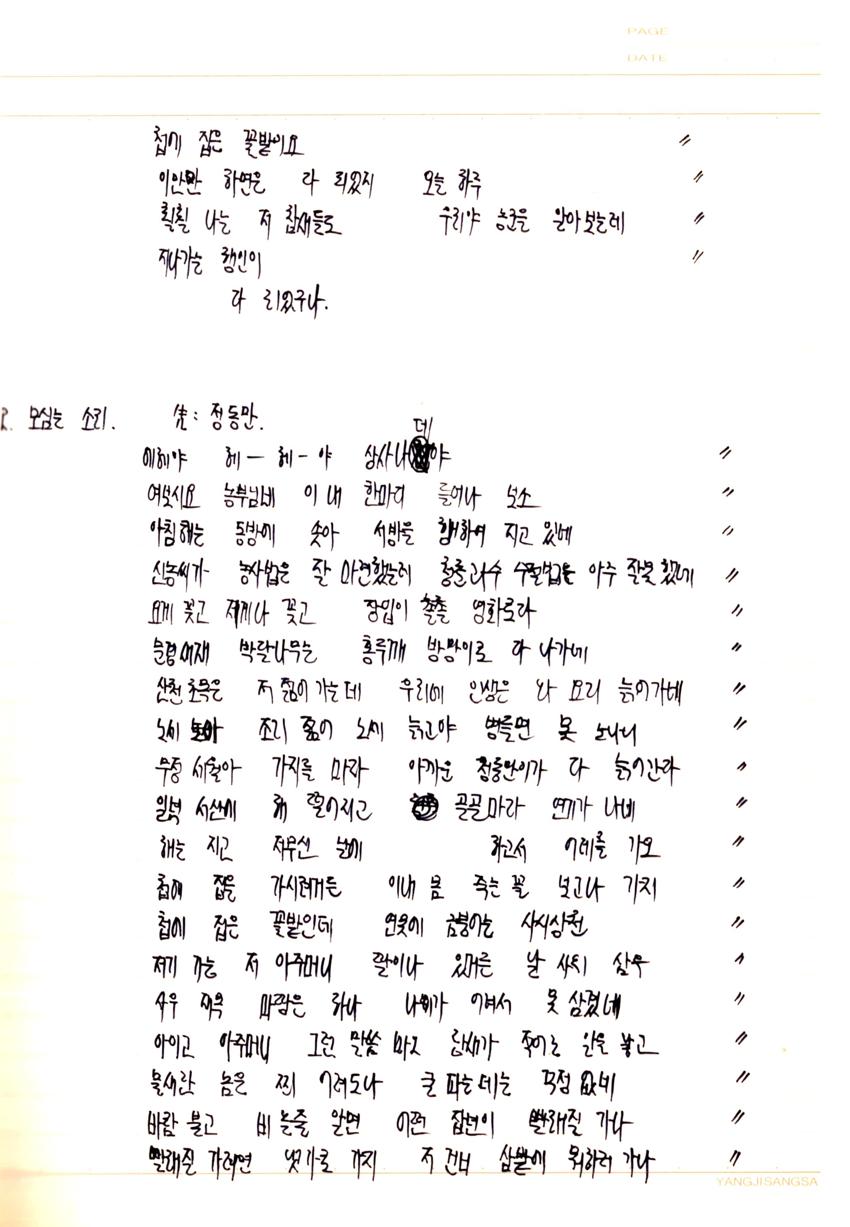 PAGE
DATE
첩에 집은 꽃밭이요 〃
이만만 하면은 다 되었지 오늘 하루 〃
훨훨 나는 저 참새들도 우리야 농군을 알아보는데 〃
지나가는 행인이 〃
다 되었구나.
모심는 소리. 先: 정동만.
데
에헤야 헤 — 헤 - 야 상사나야 〃
여보시요 농부님네 이 내 한마디 들어나 보소 〃
아침해는 동방에 솟아 서방을 향하여 지고 있네 〃
신농씨가 농사법은 잘 마련했는데 아주 잘못 했네 〃
요게 꽂고 제게나 꽂고 장잎이 출출 영화로라 〃
박달나무는 홍두깨 방망이로 다 나가네 〃
산천초목은 저 젊어가는데 우리에 인생은 와 요리 늙어가네 〃
노세 노아 조리 젊어 노세 늙고야 병들면 못 노니니 〃
무정 세월아 가지를 마라 아까운 청춘만이가 다 늙어간라 〃
일락 서산에 해 떨어지고 골골마라 연기가 나네 〃
해는 지고 저무신 날에 하고서 어데를 가오 〃
첩에 집을 가시려거든 이내 몸 죽는 꼴 보고나 가지 〃
첩에 집은 꽃밭인데 연못에 금붕어는 사시상천 〃
저기 가는 저 아주머니 딸이나 있거든 날 사위 삼우 〃
사우 재목 마땅은 하나 나이가 어려서 못 삼겠네 〃
아이고 아주머니 그런 말씀 마오 참새가 작어도 알을 놓고 〃
불새란 놈은 찌 어려도나 큰 파는데는 걱정 없네 〃
바람 불고 비 올줄 알면 어떤 잡년이 빨래질 가나 〃
빨래질 가려면 냇가로 가지 저 건너 삼밭에 뭐하러 가나 〃
YANGJISANGSA